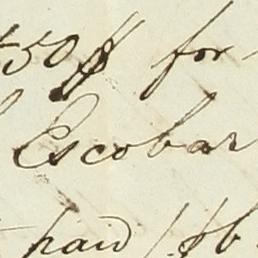 50 $ for
Escobar
paid